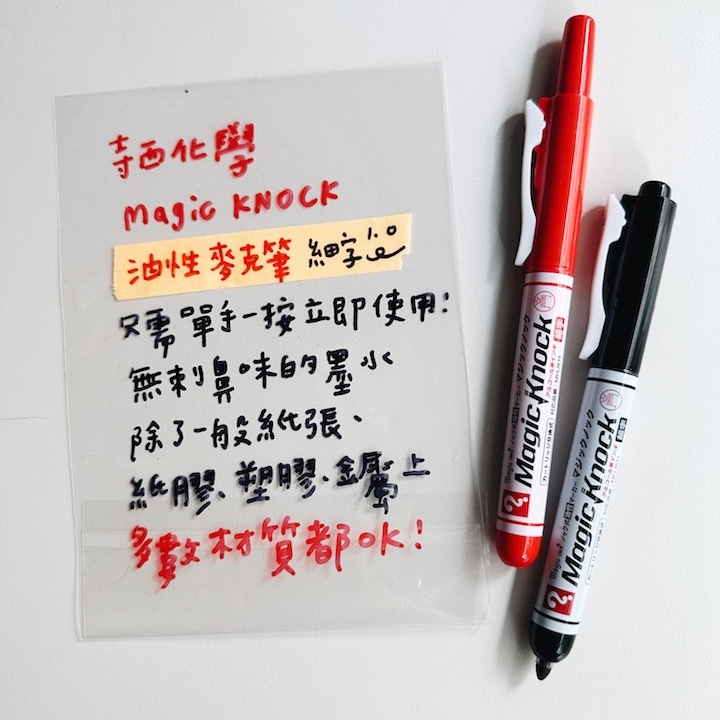 寺西化學
magic KNOCK
油性麥克筆 細字
只需單手一按立即使用!
無刺鼻味的墨水
除了一般紙張、
紙膠、塑膠、金屬上
多數材質都OK!
Magic Knock
マジックノック
細字
アルコール系インキ
カートリッジ交換式
?
Magic Knock
マジックノック
?